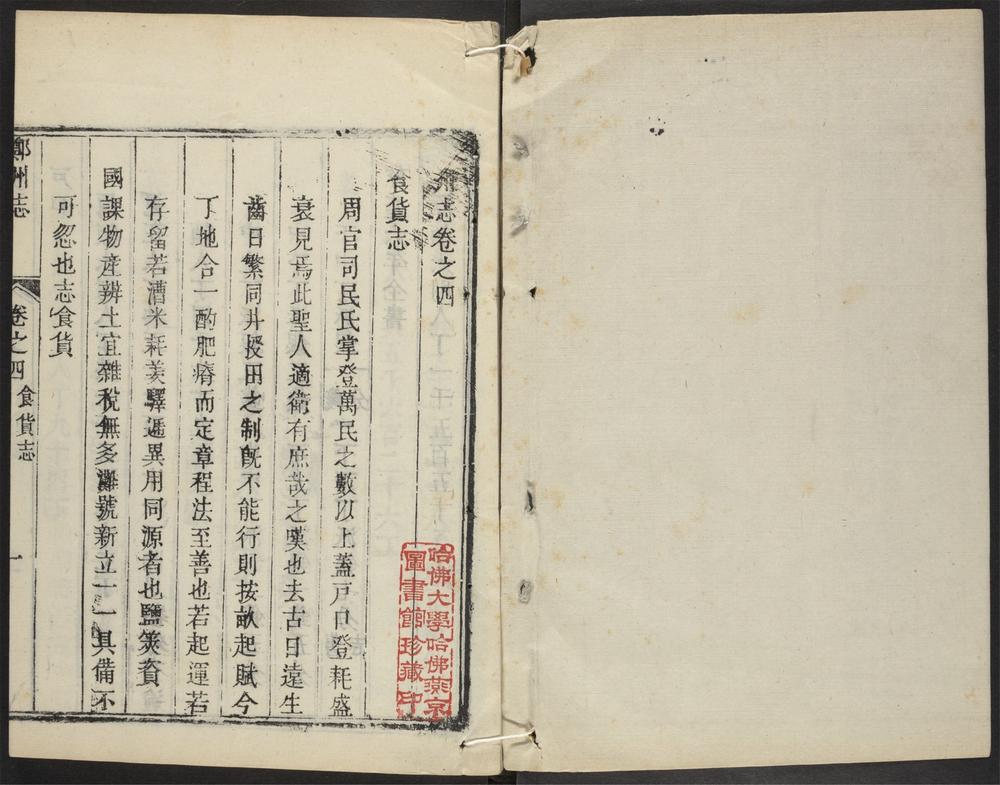 州志卷之四
食貨志
周官司民氏掌登萬民之數以上蓋戸口登耗盛
衰見焉此聖人適衛有庶哉之嘆也去古日遠生
齒日繁同井授田之制旣不能行則按畝起賦今
丁地合一酌肥瘠而定章程法至善也若起運若
存留若漕米耗羨驛遞異用同源者也鹽筴資
國課物産辨土宜雜稅無多灘號新立一一具備不
可忽也志食貨
鄭州志
卷之四
食貨志
一
哈佛大學哈佛燕京
圖書館珍藏印